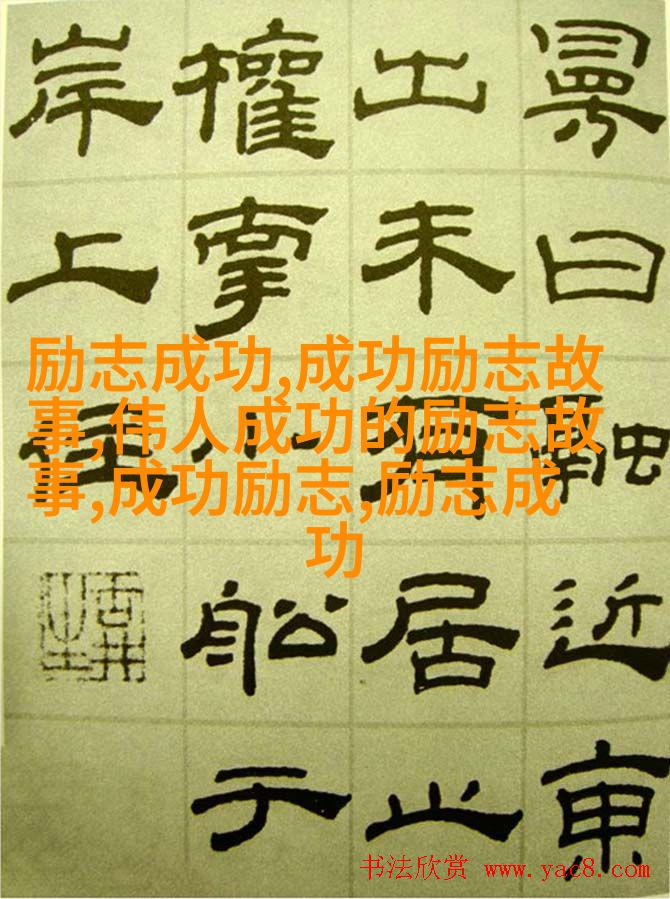 曰融近東
出未有居止
權牽小船于
岸上住
励志成功,成功励志故
事,伟人成功的励志故
事,成功励志,励志成
功
书法欣赏 www.yac8.com